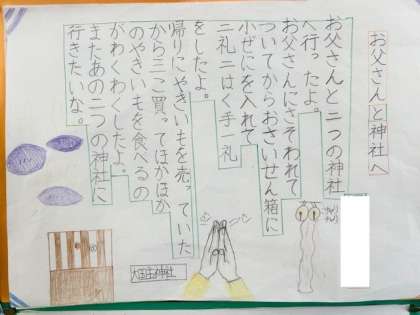 お父さんと神社へ
お父さんと二つの神社
へ行ったよ。
お父さんにさそわれて
ついてからおさいせん箱に
小ぜにを入れて
二礼二はく手一礼
をしたよ。
帰りにやきいもを売っていた
から三こ買ってほかほか
のやきいもを食べるの
がわくわくしたよ。
またあの二つの神社に
行きたいな。
大国玉神社